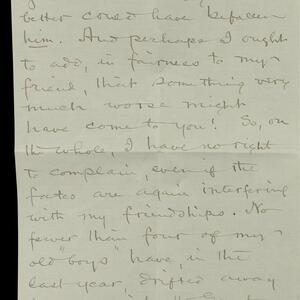 better could have befallen
him. And perhaps I ought
to add, in fairness to my
friend, that something very
much worse might
have come to you! So, on
the whole, I have no right
to complain, even if the
fates are again interfering
with my friendships. No
fewer than four of my
"old boys" have in the
last year, drifted away